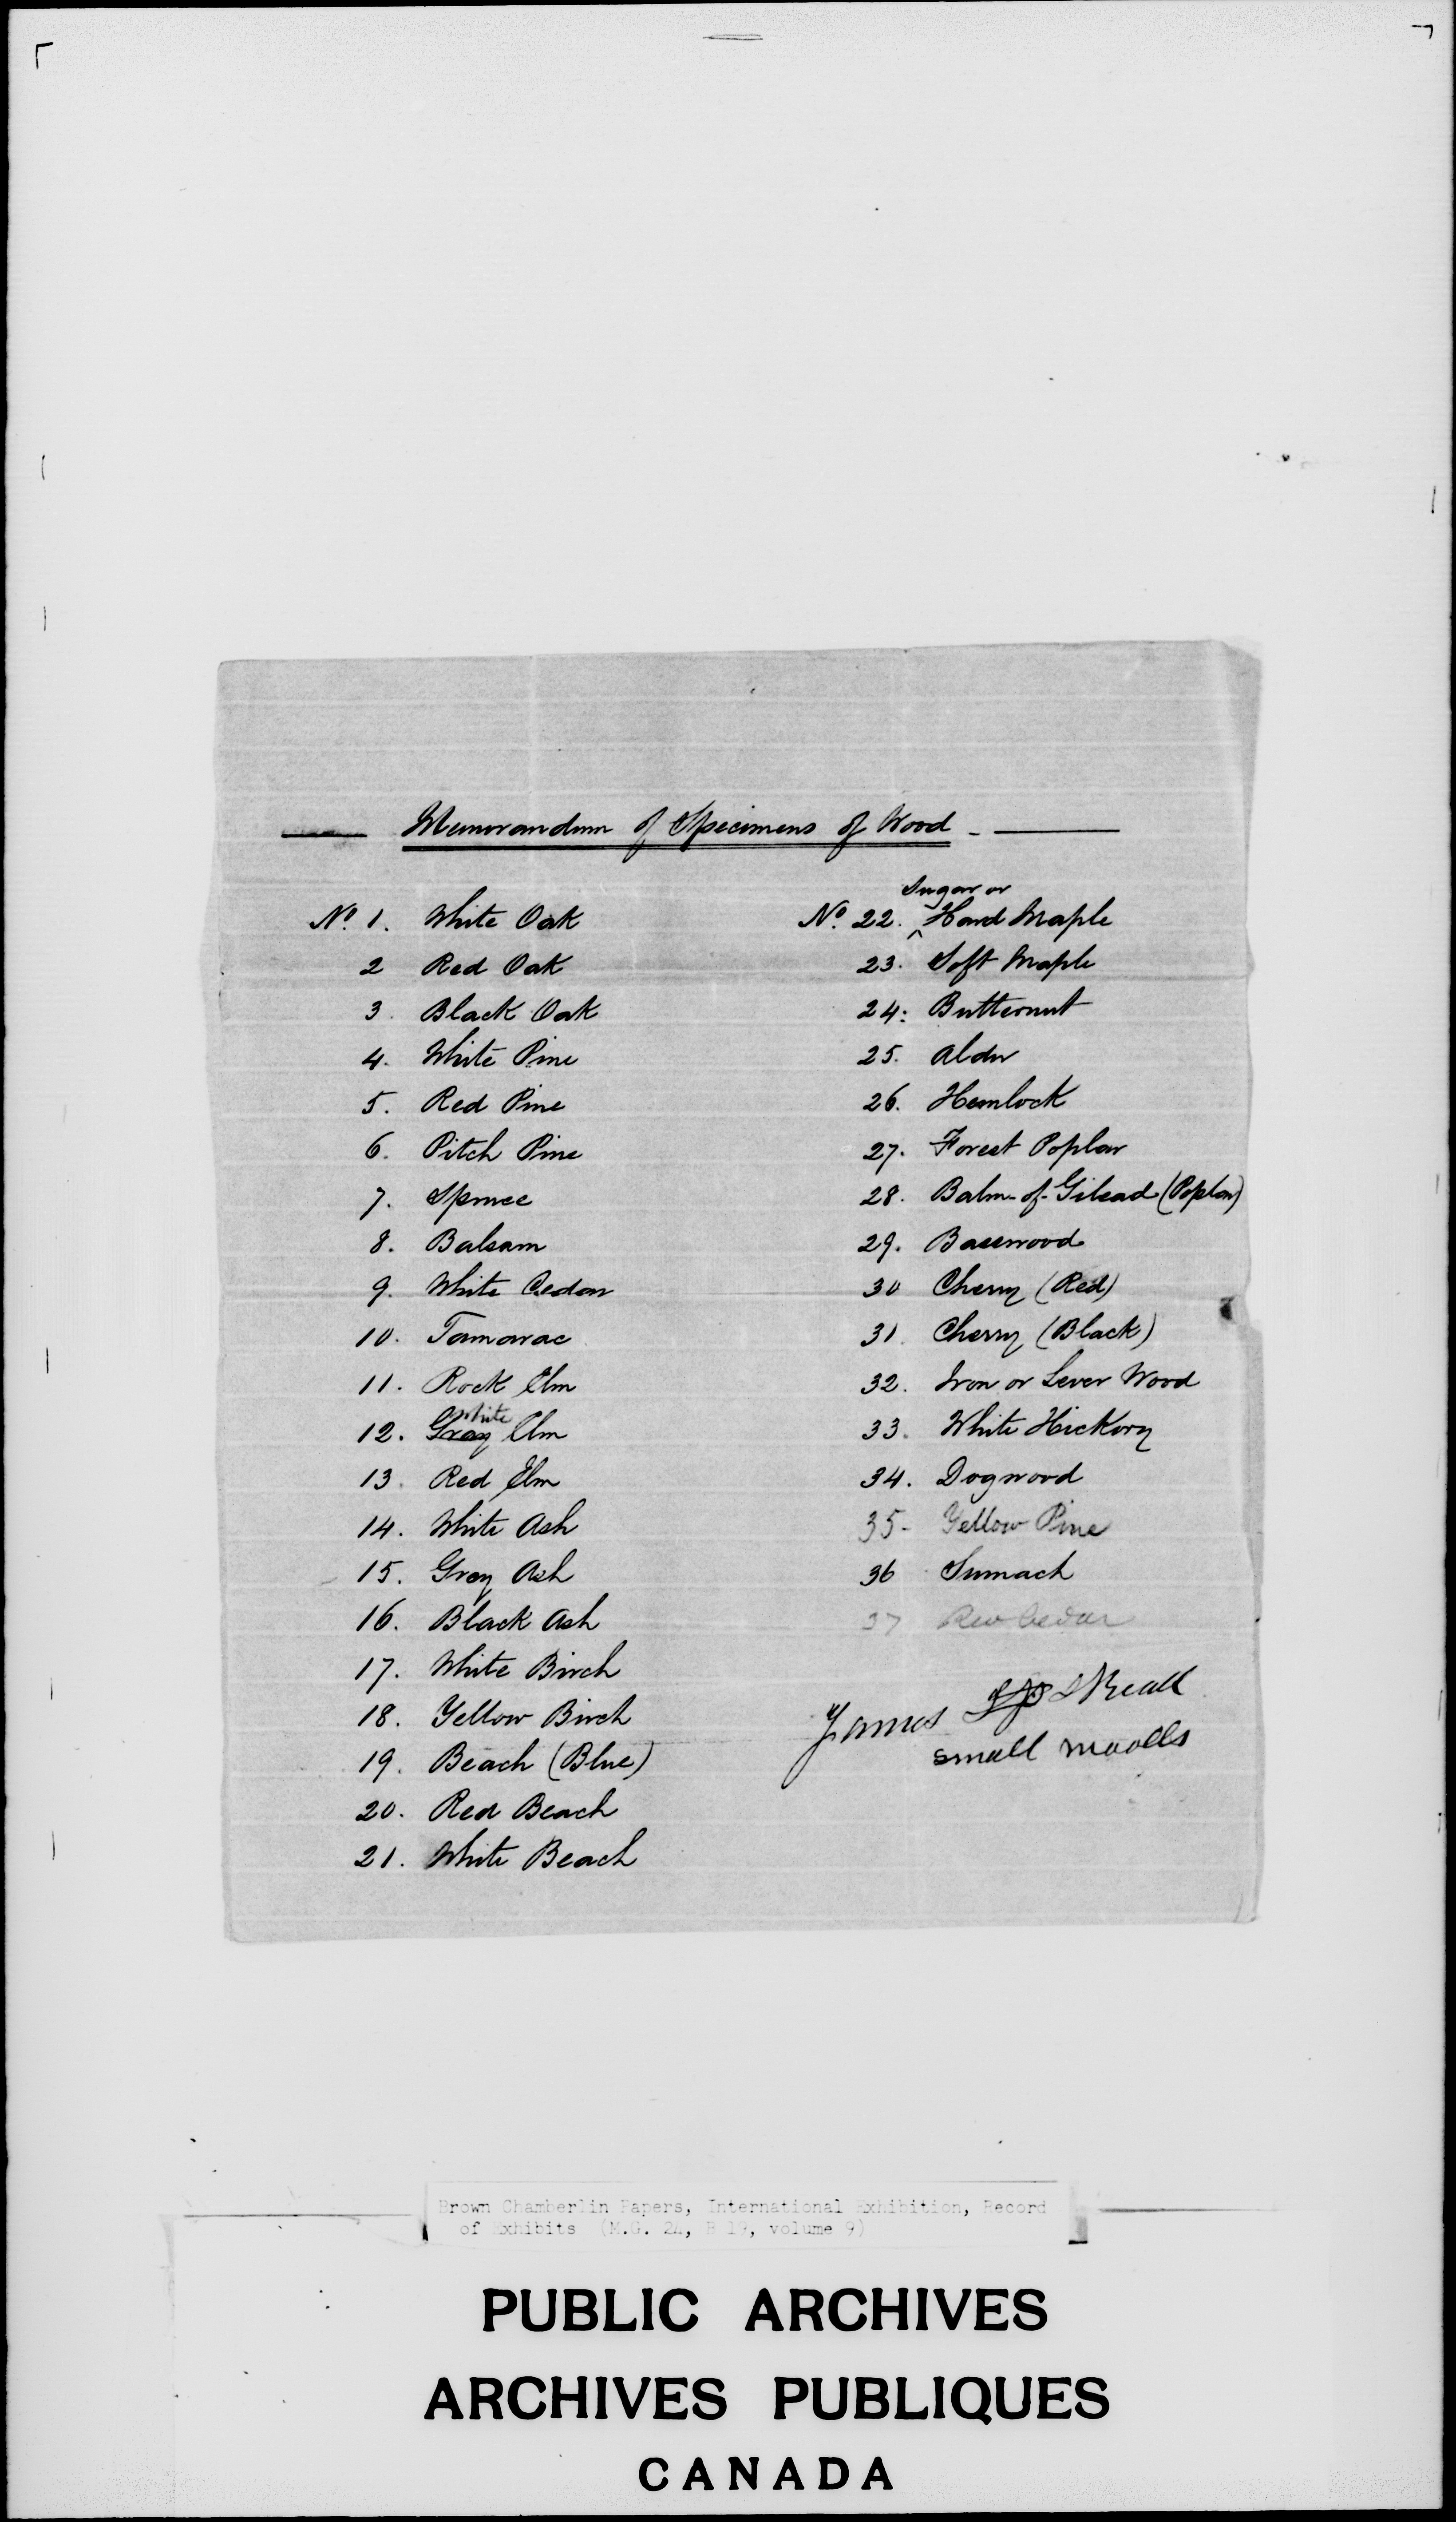 Memorandum of Specimens of Wood
No. 1. White Oak
2 Red Oak
3. Black Oak
4. White Pine
5. Red Pine
6. Pitch Pine
7. Spruce
8. Balsam
9. White Cedar
10. Tamarac
11. Rock Elm
White
12. Gray Elm
13. Red Elm
14. White Ash
15. Grey Ash
16. Black Ash
17. White Birch
18. Yellow Birch
19. Beach (Blue)
20. Red Beach
21. White Beach
Sugar or
No. 22. Hard Maple
23. Soft Maple
24. Butternut
25. Alder
26. Hemlock
27. Forest Poplar
28. Balm-of-Gilead (Poplar)
29. Basswood
30 Cherry (Red)
31. Cherry (Black)
32. Iron or Lever Wood
33. White Hickory
34. Dogwood
35- Yellow Pine
36 Sumach
37 Red Cedar
James Skead
small
Brown Chamberlin Papers, International Exhibition, Record
of Exhibits (M.G. 24, B 19, volume 9)
PUBLIC ARCHIVES
ARCHIVES PUBLIQUES
CANADA